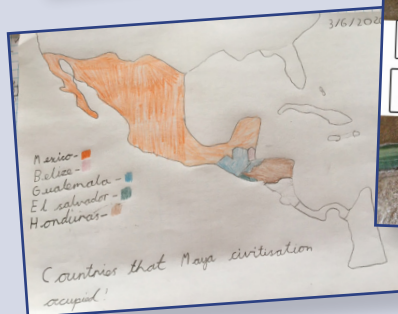 3/6/202
Mexico-
Belize-
Guatemala-
El salvador-
Honduras-
Countries that Maya civilisation
occupied!